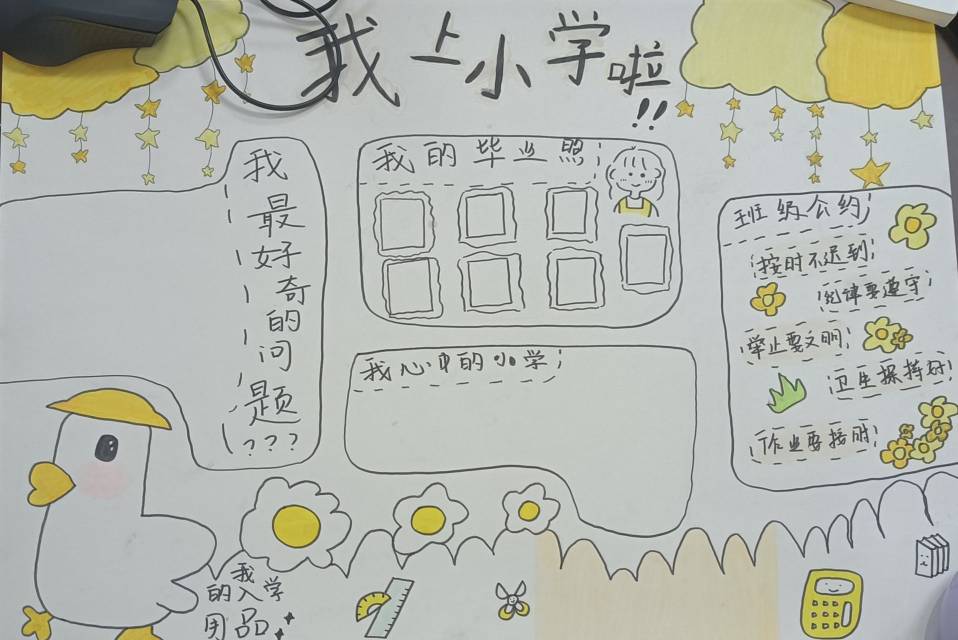 我上小学啦!!
我最好奇的问题???
我的毕业照
我心中的小学
班级公约
按时不迟到
纪律要遵守
举止要文明
卫生保持好
作业要按时
我入学
的
用品